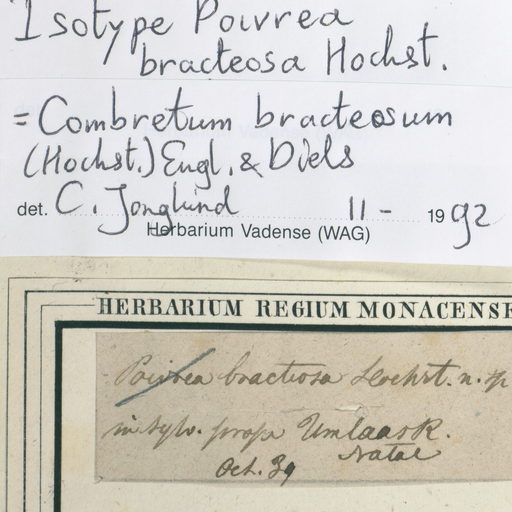 Isotype Poivrea
bracteosa Hochst.
= Combretum bracteosum
(Hochst.) Engl. & Diels
det. C. Jongkind 11 - 1992
Herbarium Vadense (WAG)
HERBARIUM REGIUM MONACENSE
Poivrea bracteosa Hochst. n. sp
in sylv. prope Umlaas R.
Natal
Oct. 39